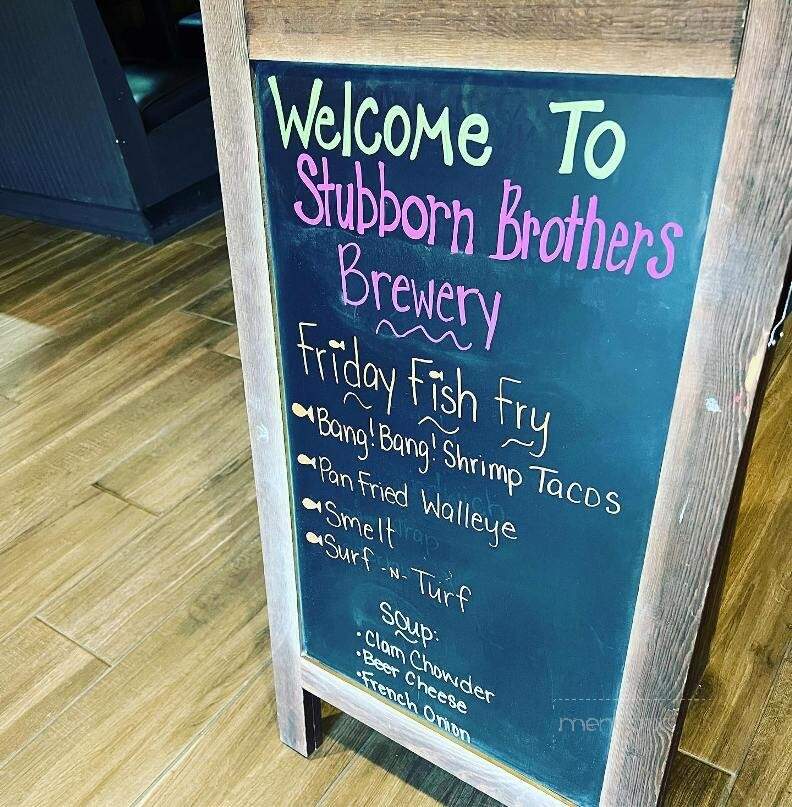 Welcome To
Stubborn Brothers
Brewery
Friday Fish Fry
Bang! Bang! Shrimp Tacos
Pan Fried Walleye
Smelt
Surf -N- Turf
Soup:
• Clam Chowder
• Beer Cheese
• French Onion